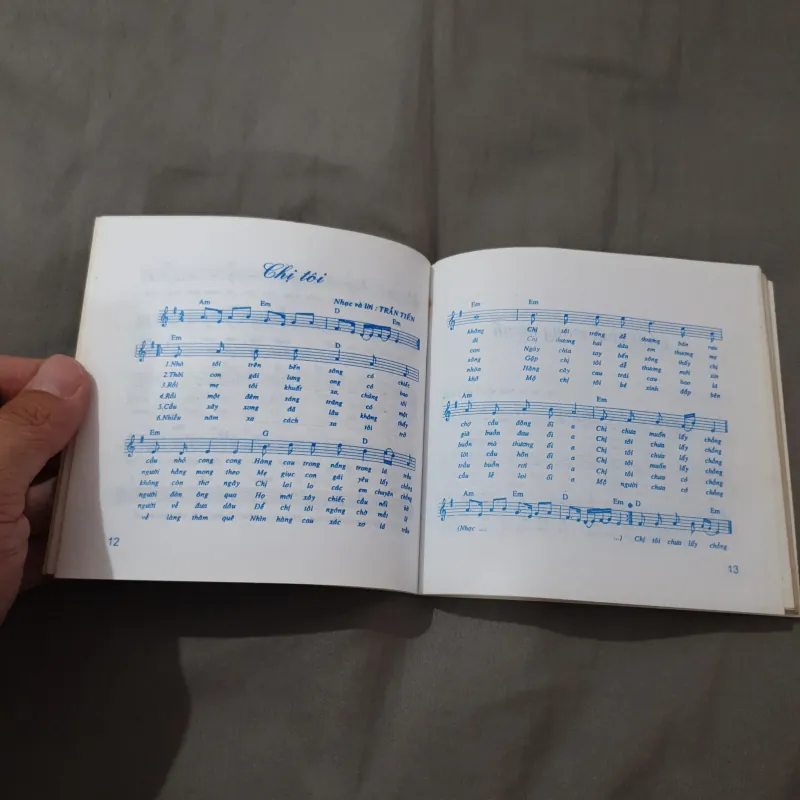 Chị tôi
Nhạc và lời : TRẦN TIẾN
Am Em D Em
Em D
1.Nhà tôi trên bến sông có chiếc
2.Thời con gái lưng ong có bao
3.Rồi mẹ tôi khuất xa, chúng tôi
4.Rồi một đêm sáng trăng có một
5.Cầu xây xong đã lâu không
6.Nhiều năm xa cách xa tôi trở
Em G D Em
cầu nhỏ cong cong Hàng cau trong nắng trong lá trầu
người hằng mong theo Mẹ giục con gái yêu lấy chồng
không còn thơ ngây Chị lại lo các em chuyện chồng
người đàn ông qua Họ mới xây chiếc cầu nối bờ
người về đưa dâu Để chị tôi ngóng chờ mỗi
về làng thăm quê Nhìn hàng cau xác xơ lá trầu
12
Em Em
không Chị tôi trăng dễ thương bán rau
đi Chị thương hai đứa em thương mẹ
con Ngày chia tay bến sông thấy chị
sông Gặp chị tôi dễ thương mới xin
nhòn Hàng cây cau trái cau bao lá
khô Mộ chị tôi bé xinh đắp bên
Am Em D Em
chợ cầu đông đi a Chị chưa muốn lấy chồng
già buồn đau đi a Chị tôi chưa lấy chồng
buồn mà thương đi a Chị muốn lấy chồng
lời cầu hôn đi a Chị tôi muốn lấy chồng
trầu buồn rơi đi a Chị tôi chưa lấy chồng
cầu lẻ loi đi a Mộ người chưa có chồng
Am Em D Em D Em
(Nhạc ..... ...) Chị tôi chưa lấy chồng.
13